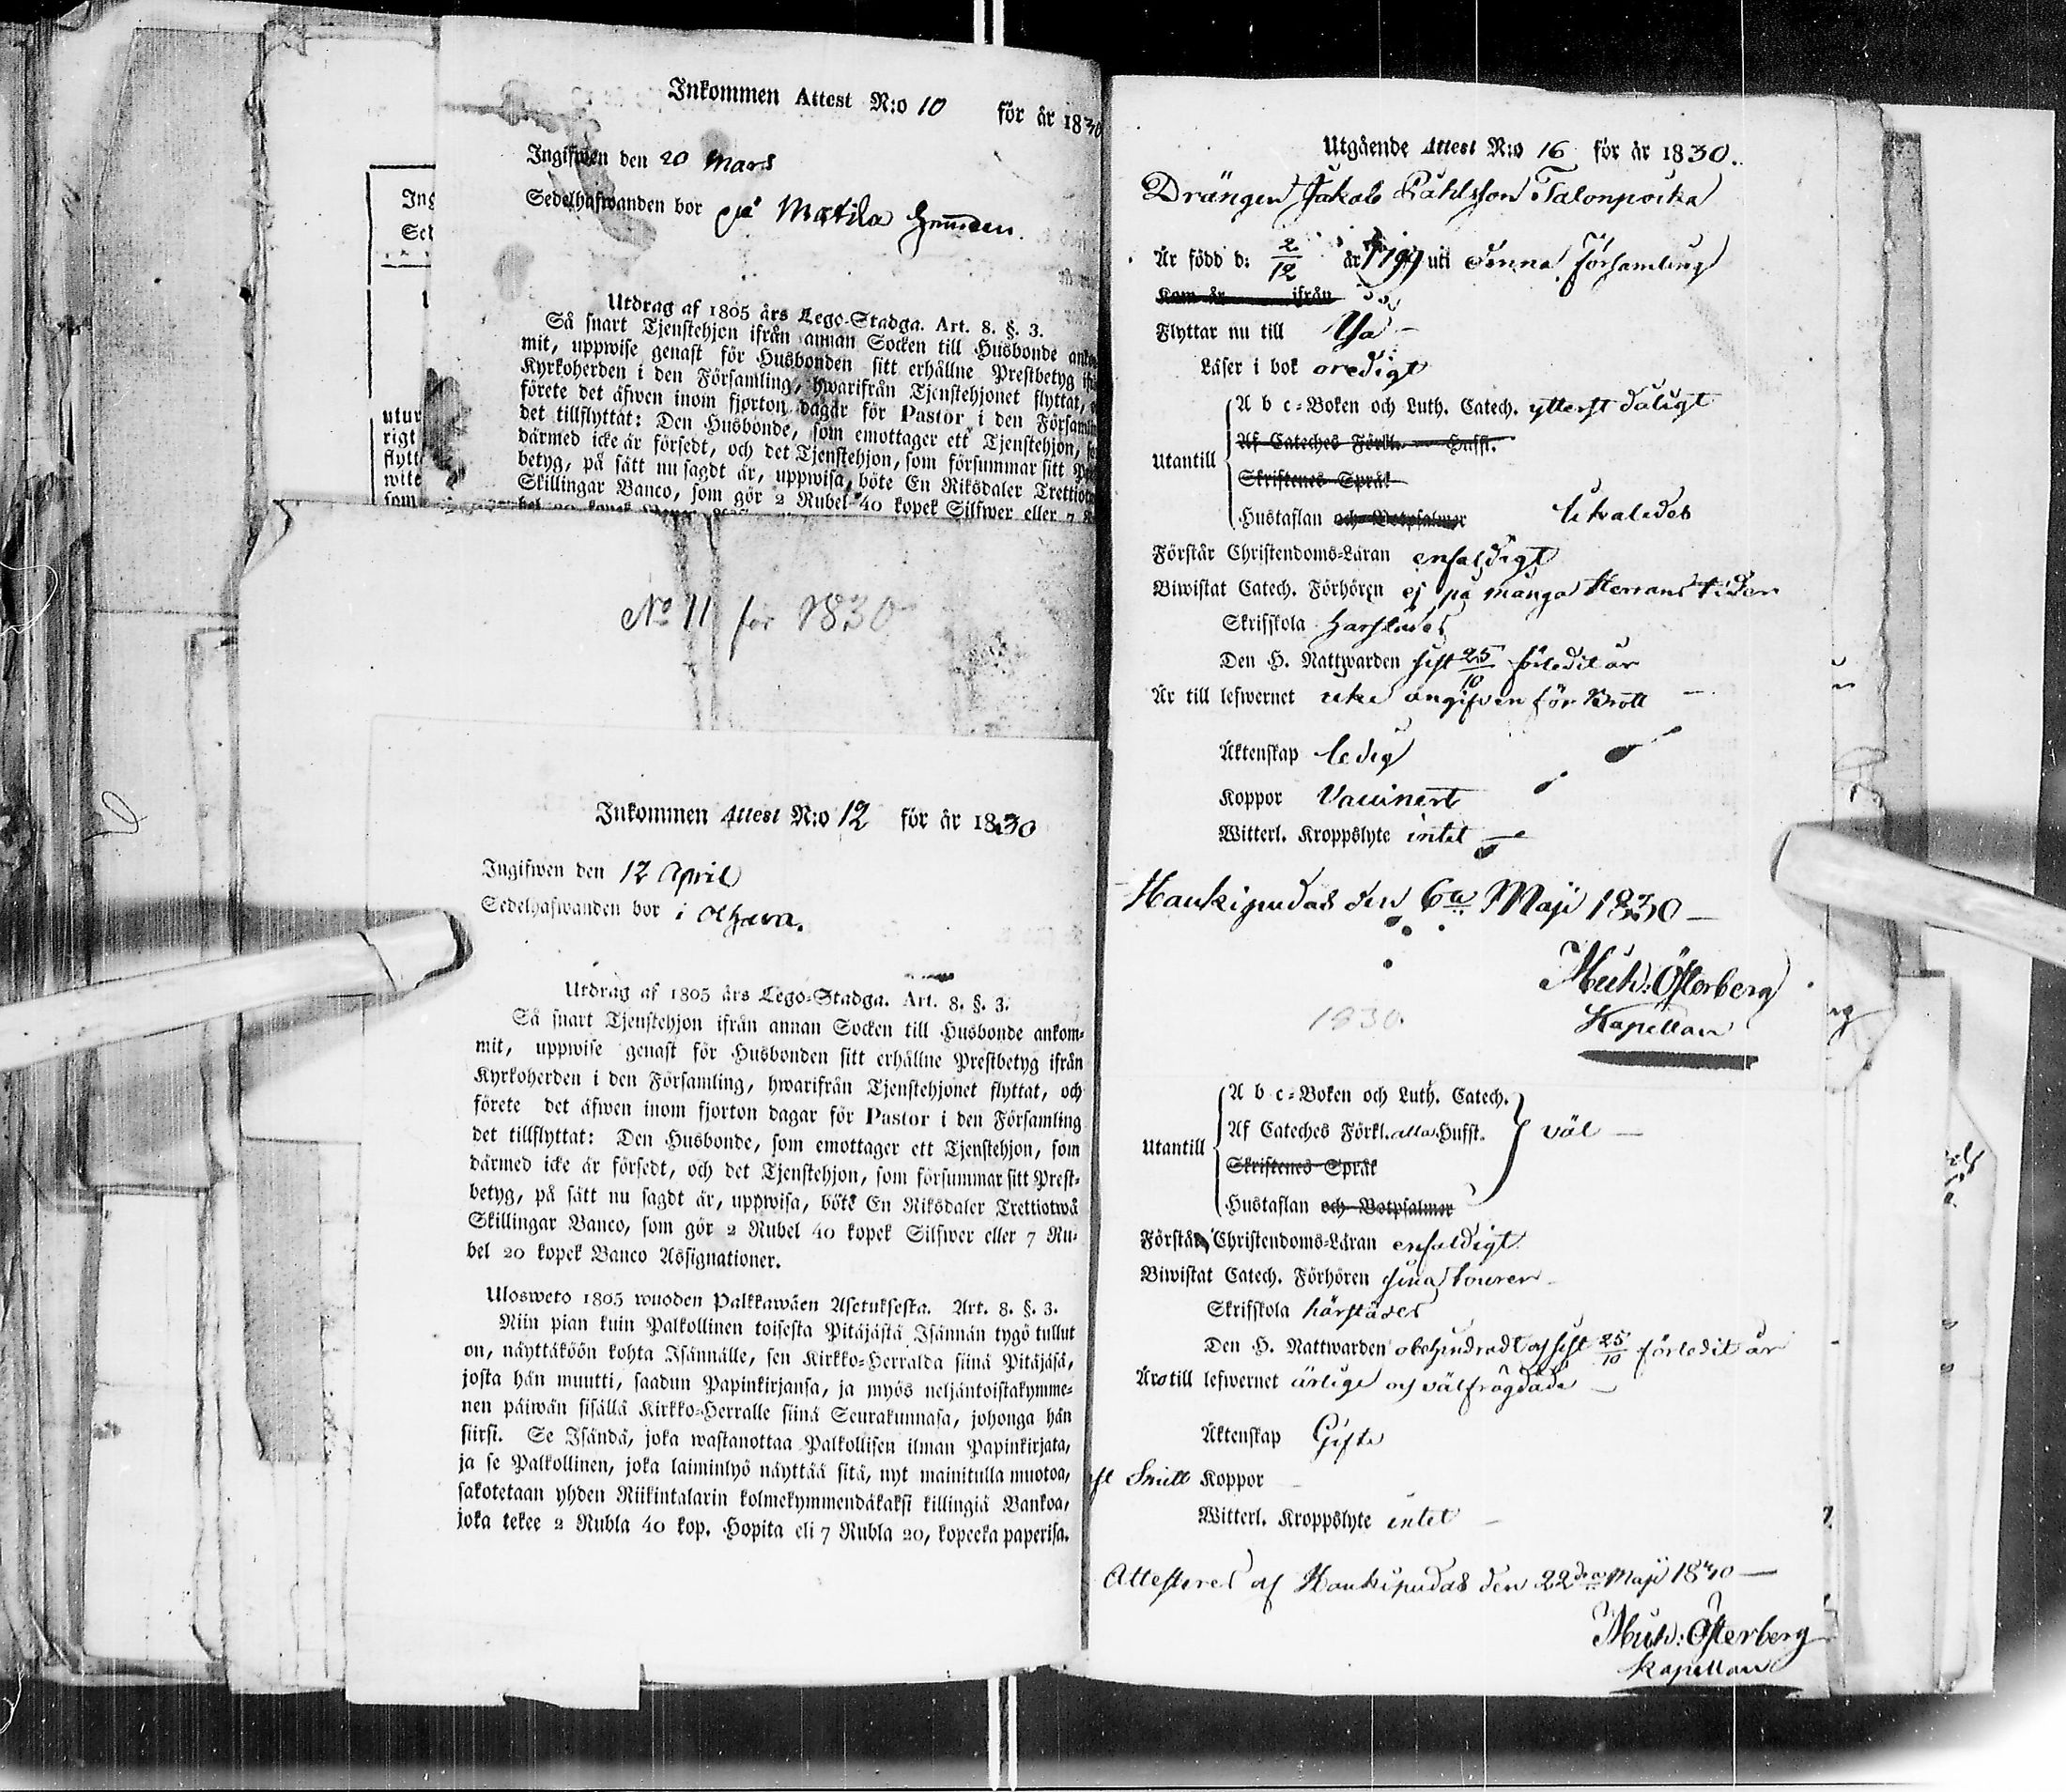 Inkommen Attest N:o 10 för år 1830
Ingifwen den 20 Mars
Sedelhafwanden bor på Matila hemman.
Utdrag af 1805 års Lego-Stadga. Art. 8. §. 3.
Så snart Tjenstehjon ifrån annan Socken till Husbonde
mit, uppwise genast för Husbonden sitt erhållne Prestbetyg
Kyrkoherden i den Församling, hwarifrån Tjenstehjonet flyttat,
förete det äfwen inom fjorton dagar för Pastor i den
det tillflyttat: Den Husbonde, som emottager ett Tjenstehjon,
därmed icke är försedt, och det Tjenstehjon, som försummar sitt
betyg, på sätt nu sagdt är, uppwisa, böte En Riksdaler
Skillingar Banco, som gör 2 Rubel 40 kopek Silfwer eller 7
Ing
utur
rigt
flytt
wite
som
No 11 för 1830
Inkommen Attest N:o 12 för år 1830
Ingifwen den 12 April
Sedelhafwanden bor i Olhava.
Utdrag af 1805 års Lego-Stadga. Art. 8. §. 3.
Så snart Tjenstehjon ifrån annan Socken till Husbonde ankom-
mit, uppwise genast för Husbonden sitt erhållne Prestbetyg ifrån
Kyrkoherden i den Församling, hwarifrån Tjenstehjonet flyttat, och
förete det äfwen inom fjorton dagar för Pastor i den Församling
det tillflyttat: Den Husbonde, som emottager ett Tjenstehjon, som
därmed icke är försedt, och det Tjenstehjon, som försummar sitt Prest-
betyg, på sätt nu sagdt är, uppwisa, böte En Riksdaler Trettiotwå
Skillingar Banco, som gör 2 Rubel 40 kopek Silfwer eller 7 Ru-
bel 20 kopek Banco Assignationer.
Ulosweto 1805 wuoden Palkkawäen Asetuksesta. Art. 8. §. 3.
Niin pian kuin Palkollinen toisesta Pitäjästä Isännän tygö tullut
on, näyttäköön kohta Isännälle, sen Kirkko-Herralda siinä Pitäjäsä,
josta hän muutti, saadun Papinkirjansa, ja myös neljäntoistakymme-
nen päiwän sisällä Kirkko-Herralle siinä Seurakunnasa, johonga hän
siirsi. Se Isändä, joka wastanottaa Palkollisen ilman Papinkirjata,
ja se Palkollinen, joka laiminlyö näyttää sitä, nyt mainitulla muotoa,
sakotetaan yhden Riikintalarin kolmekymmendäkaksi killingiä Bankoa,
joka tekee 2 Rubla 40 kop. Hopita eli 7 Rubla 20, kopeeka paperisa.
Utgående Attest N:o 16 för år 1830.
Drängen Jakob Påhlsson Talonpoika
Är född d: 2/12 år 1799 uti denna Församling
Kom år ifrån
Flyttar nu till Ijo
Läser i bok oredigt
Utantill
A b c-Boken och Luth. Catech. ytterst dåligt
Af Cateches Förkl. Hufst.
Skriftenes Språk
Hustaflan och Botpsalmer likaledes
Förstår Christendoms-Läran enfaldigt
Biwistat Catech. Förhören ej på många Herrans tider
Skrifskola härstädes
Den H. Nattwarden sist 25/10 förledit år
Är till lefwernet icke angifven för Brott
Äktenskap ledig
Koppor Vaccinert
Witterl. Kroppslyte intet
Haukipudas den 6te Maji 1830
Mich: Österberg
Kapellan
1830.
Utantill
A b c-Boken och Luth. Catech.
Af Cateches Förkl. alla Hufst. väl
Skriftenes Språk
Hustaflan och Botpsalmer
Förstår Christendoms-Läran enfaldigt
Biwistat Catech. Förhören sina tourer
Skrifskola härstädes
Den H. Nattwarden obehindradt och sist 25/10 förledit år
Äro till lefwernet ärlige och välfrägdade
Äktenskap Gifte
Koppor
Witterl. Kroppslyte intet
Attesteras af Haukipudas den 22dra Maji 1830
Mich: Österberg
Kapellan